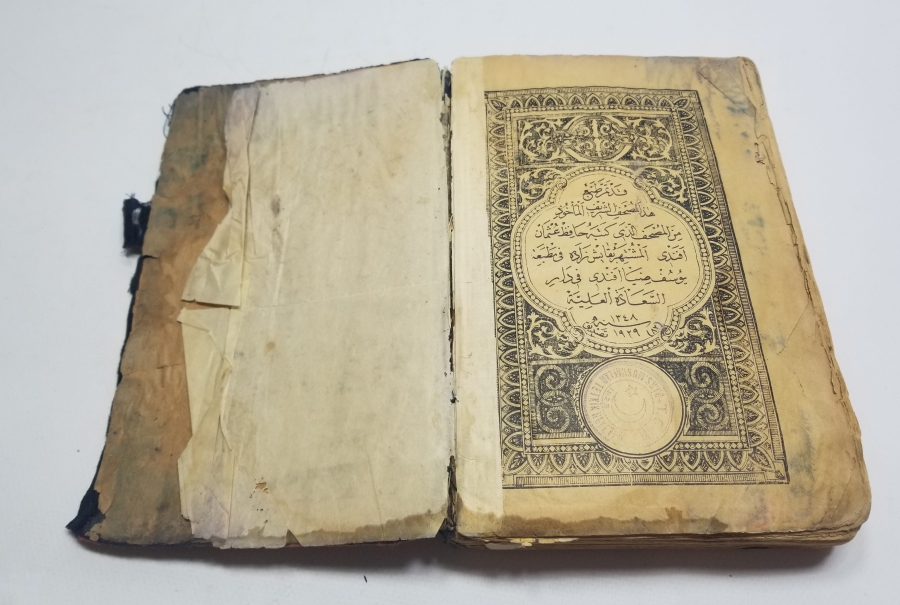 قد تم طبع
هذا المصحف الشريف المأخوذ
من المصحف الذى كتبه حافظ عثمان
افندى الشهير بقايش زاده فى مطبعه
يوسف ضيا افندى فى دار
السعادة العلية
١٣٤٨
١٩٢٩